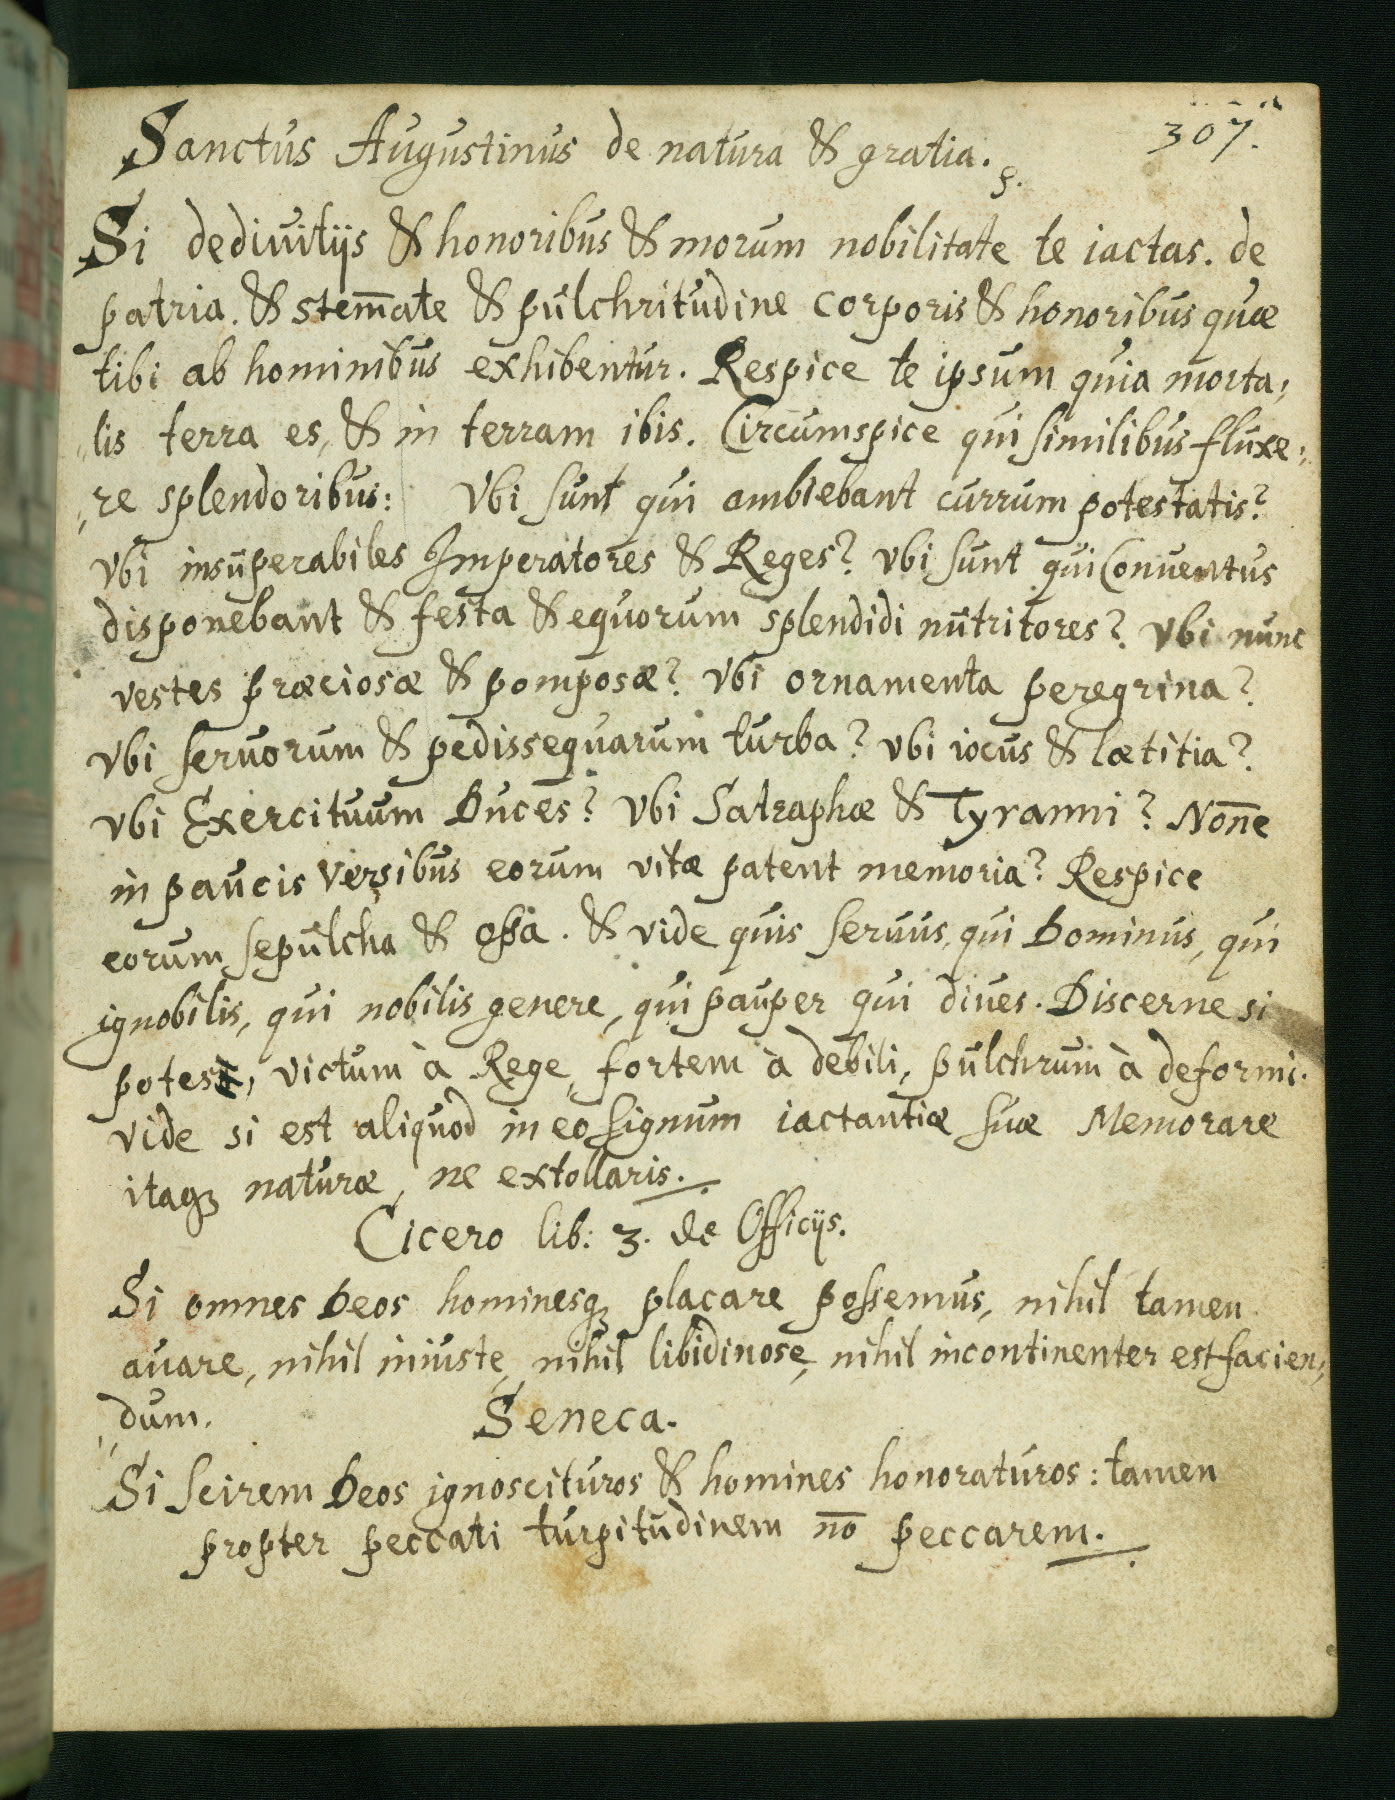 307.
Sanctus Augustinus de natura & gratia. §.
Si dedivitijs & honoribus & morum nobilitate te iactas. de
patria. & stem̄ate & pulchritudine corporis & honoribus quæ
tibi ab hominibus exhibentur. Respice te ipsum quia morta,
lis terra es, & in terram ibis. Circumspice qui similibus fluxe,
,re splendoribus: Vbi sunt qui ambiebant currum potestatis?
vbi insuperabiles Imperatores & Reges? vbi sunt qui Conuentus
disponebant & festa & equorum splendidi nutritores? vbi nunc
vestes præciosæ & pomposæ? vbi ornamenta peregrina?
vbi seruorum & pedissequarum turba? vbi iocus & lætitia?
vbi Exercituum Duces? vbi Satraphæ & Tyranni? Non̄e
in paucis versibus eorum vitæ patent memoria? Respice
eorum sepulcha & ossa. & vide quis seruus, qui Dominus, qui
ignobilis, qui nobilis genere, qui pauper qui diues. Discerne si
potes, victum à Rege, fortem à debili, pulchrum à deformi.
vide si est aliquod in eo signum iactantiæ suæ Memorare
itaqꝫ naturæ, ne extollaris.
Cicero lib: 3. de Officijs.
Si omnes Deos hominesqꝫ placare possemus, nihil tamen
auare, nihil iniuste, nihil libidinose, nihil incontinenter est facien,
,dum. Seneca.
Si scirem Deos ignoscituros & homines honoraturos: tamen
propter peccati turpitudinem nō peccarem.